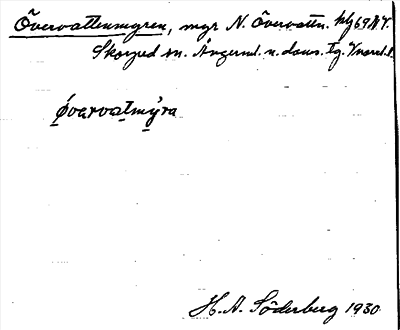 Övervattenmyren, myr N. Övervattn.
Skorped sn. Ångerml. n. doms.
øvarvatmyra
H. A. Söderberg 1930